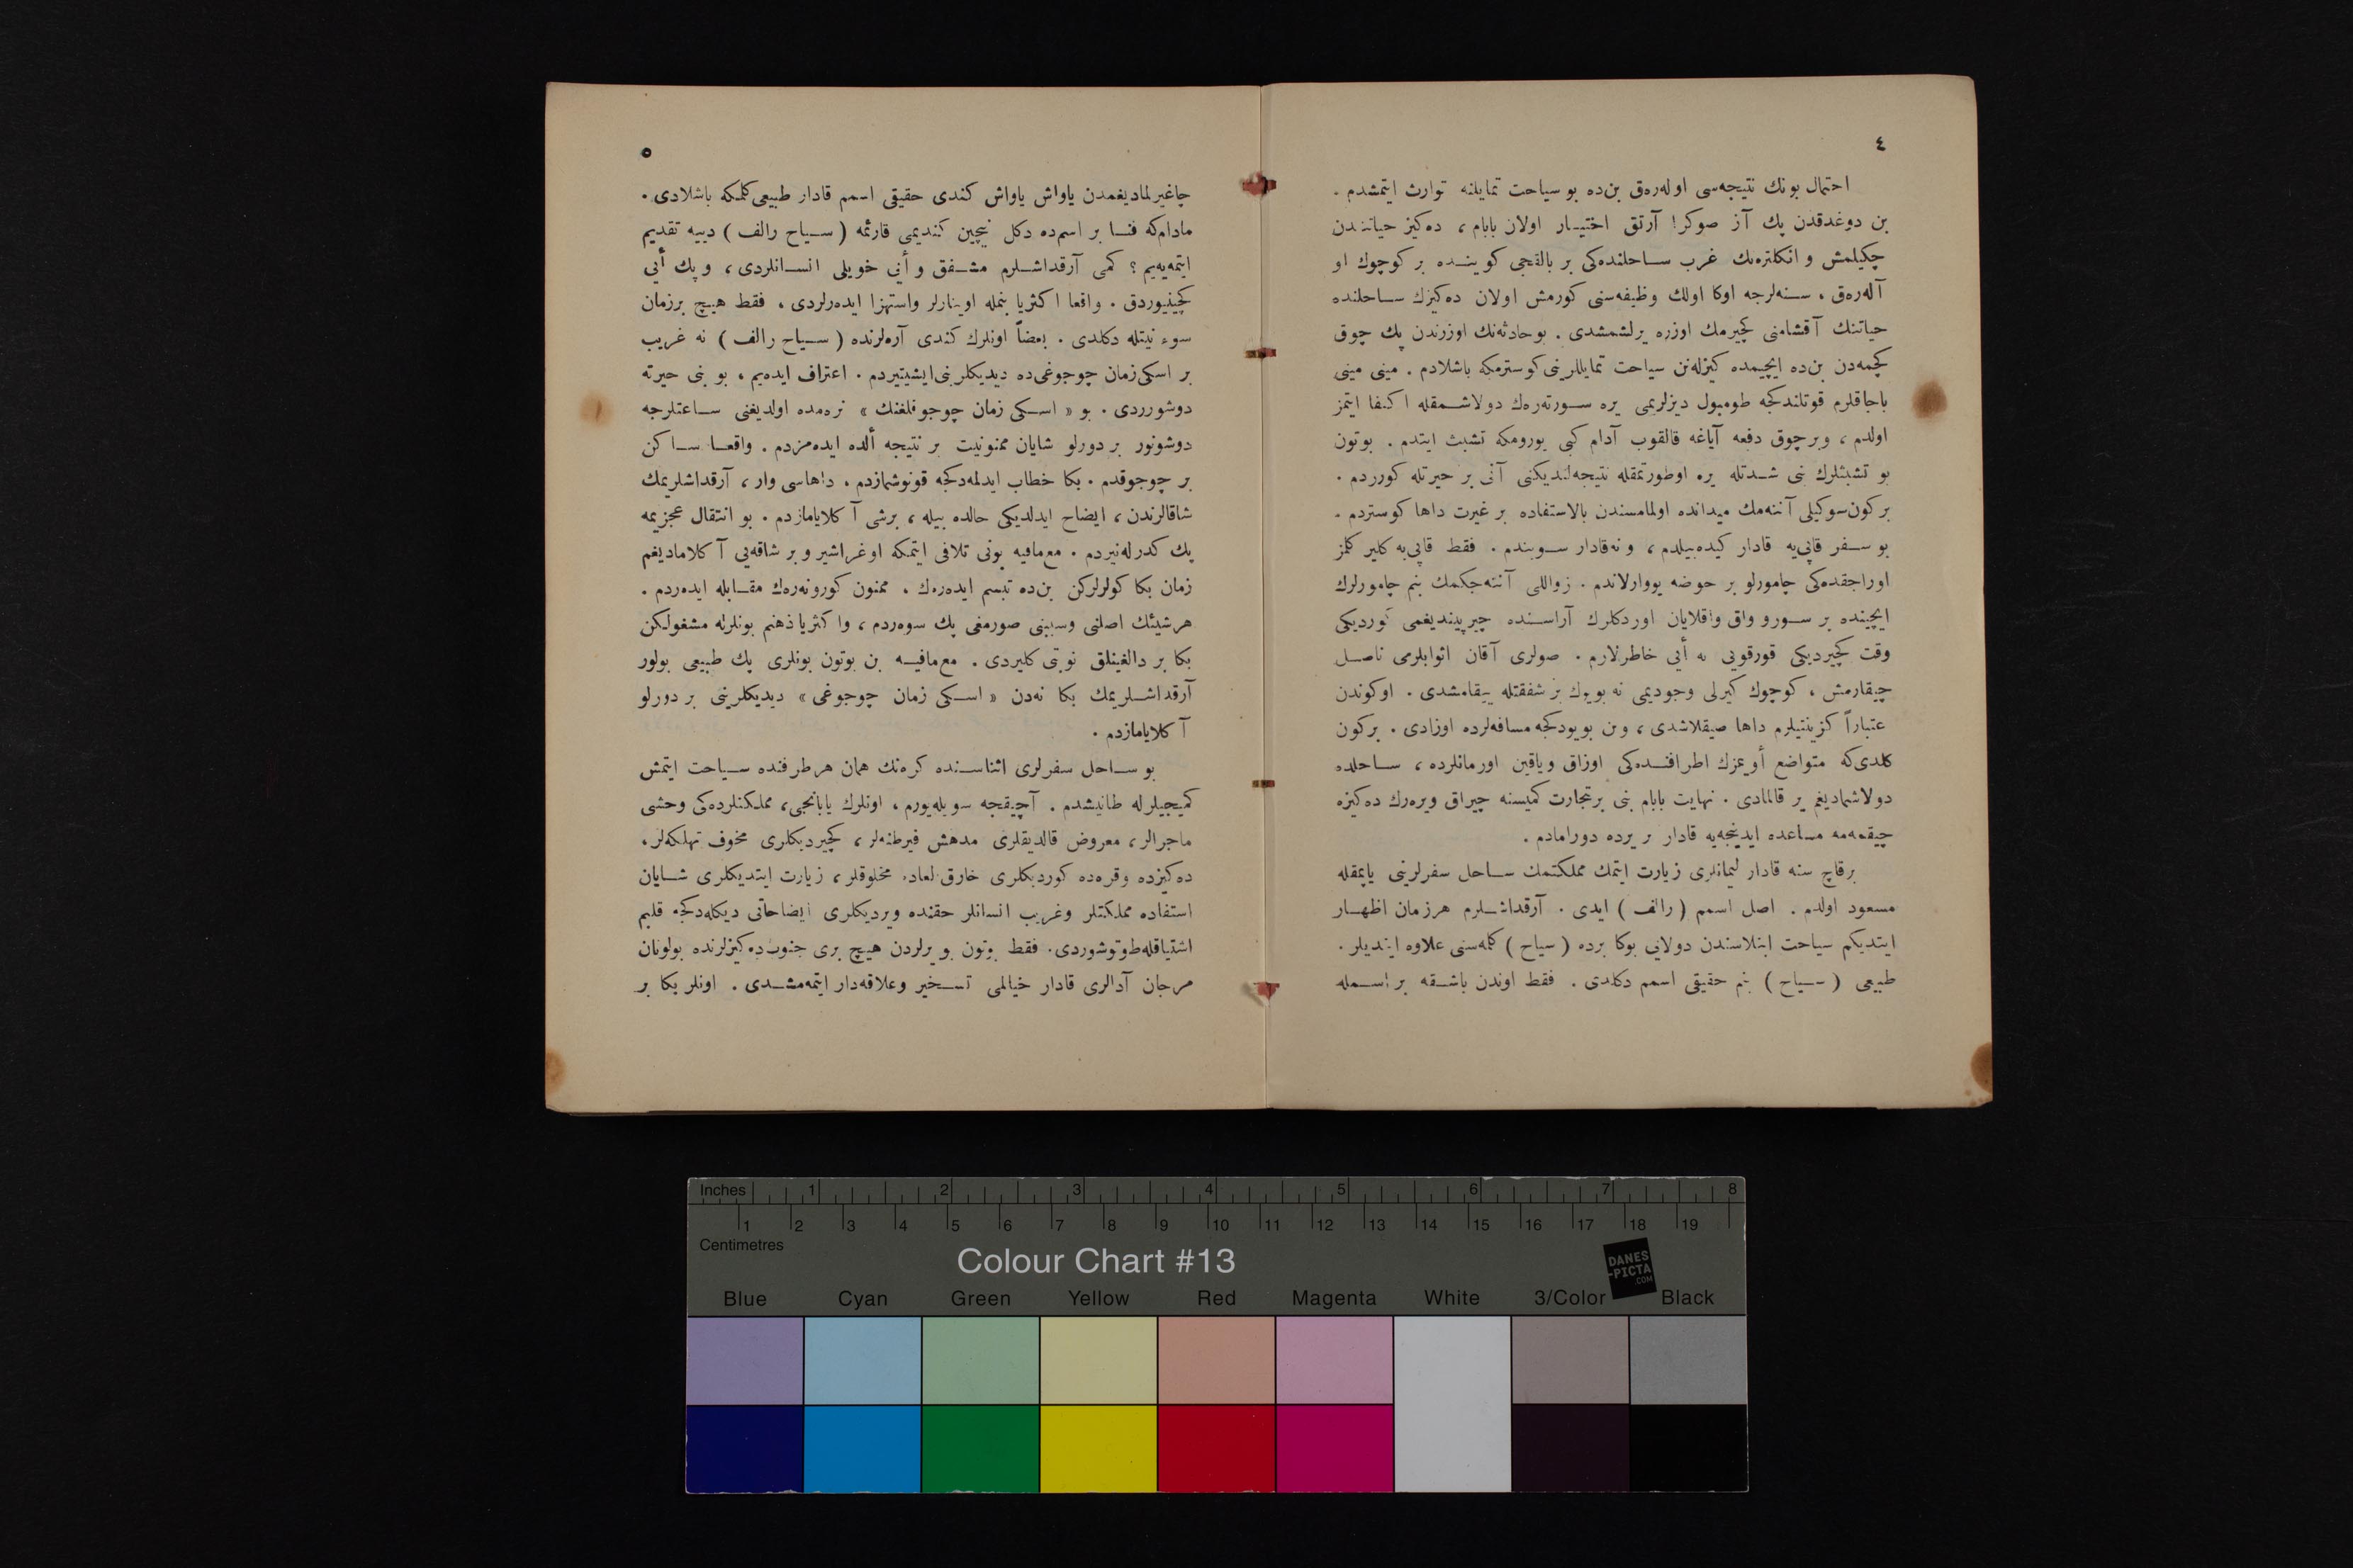 ٤
احتمال بونك نتیجه‌سی اوله‌رەق بن‌ده بو سیاحت تمایلنه توارث ایتمشدم .
بن دوغدقدن پك آز صوكرا آرتق اختیار اولان بابام ، ده‌كیز حیاتندن
چكیلمش و انكلتره‌نك غرب ساحلنده‌كی بر بالقجی كوینده بر كوچوك او
آله‌رەق ، سنه‌لرجه اوكا اولك وظیفه‌سنی كورمش اولان ده‌كیزك ساحلنده
حیاتنك آقشامنی كچیرمك اوزره یرلشمشدی . بو حادثه‌نك اوزرندن پك چوق
كچمه‌دن بن‌ده ایچیمده كیزله‌نن سیاحت تمایللرینی كوسترمكه باشلادم . مینی مینی
باجاقلرم قوتلندكجه طومبول دیزلریمی یره سورته‌رەك دولاشمقله اكتفا ایتمز
اولدم ، و بر چوق دفعه آیاغه قالقوب آدام كبی یورومكه تشبث ایتدم . بوتون
بو تشبثلرك بنی شدتله یره اوطورتمقله نتیجه‌لندیكنی آنی بر حیرتله كوردم .
بر كون سوكیلی آننه‌مك میدانده اولمامسندن بالاستفاده بر غیرت داها كوستردم .
بو سفر قاپی‌یه قادار كیده‌بیلدم ، و نه‌قادار سویندم . فقط قاپی‌یه كلیر كلمز
اوراجقده‌كی چامورلو بر حوضه یووارلاندم . زواللی آننه‌جكمك بنم چامورلرك
ایچینده بر سورو واق واقلایان اوردكلرك آراسنده چیرپیندیغمی كوردیكی
وقت كچیردیكی قورقویی نه أیی خاطرلارم . صولری آقان اثوابلرمی ناصل
چیقارمش ، كوچوك كیرلی وجودیمی نه بویوك بر شفقتله ییقامشدی . اوكوندن
عتباراً كزینتیلرم داها صیقلاشدی ، و بن بویودكجه مسافه‌لرده اوزادی . بر كون
كلدی كه متواضع أویمزك اطرافنده‌كی اوزاق و یاقین اورمانلرده ، ساحلده
دولاشمادیغم یر قالمادی . نهایت بابام بنی بر تجارت كمیسنه چیراق ویره‌رك ده‌كیزه
چیقمه‌مه مساعده ایدینجه‌یه قادار بر یرده دورامادم .
بر قاچ سنه قادار لیمانلری زیارت ایتمك مملكتمك ساحل سفرلرینی یاپمقله
مسعود اولدم . اصل اسمم ( رالف ) ایدی . آرقداشلرم هر زمان اظهار
ایتدیكم سیاحت ابتلاسندن دولایی بوكا برده ( سیاح ) كلمه‌سنی علاوه ایتدیلر .
طبیعی ( سیاح ) بنم حقیقی اسمم دكلدی . فقط اوندن باشقه بر اسمله
٥
چاغیرلمادیغمدن یاواش یاواش كندی حقیقی اسمم قادار طبیعی كلمكه باشلادی .
مادام‌كه فنا بر اسم‌ده دكل نیچین كندیمی قارئمه ( سیاح رالف ) دییه تقدیم
ایتمه‌یه‌یم ؟ كمی آرقداشلرم مشفق و أیی خویلی انسانلردی ، و پك أیی
كچینیوردق . واقعا اكثریا بنمله اوینارلر واستهزا ایده‌رلردی ، فقط هیچ برزمان
سوء نیتله دكلدی . بعضاً اونلرك كندی آره‌لرنده ( سیاح رالف ) نه غریب
بر اسكی زمان چوجوغی‌ده دیدیكلرینی ایشیتیردم . اعتراف ایده‌یم ، بو بنی حیرته
دوشورردی . بو « اسكی زمان چوجوقلغنك » نره‌مده اولدیغنی ساعتلرجه
دوشونور بر دورلو شایان ممنونیت بر نتیجه ألده ایده‌مزدم . واقعا ساكن
بر چوجوقدم . بكا خطاب ایدلمه‌دكجه قونوشمازدم . داهاسی وار ، آرقداشلریمك
شاقالرندن ، ایضاح ایدلدیكی حالده بیله ، برشی آكلایامازدم . بو انتقال عجزیمه
پك كدرله‌نیردم . مع‌مافیه بونی تلافی ایتمكه اوغراشیر و بر شاقه‌یی آكلامادیغم
زمان بكا كولرلركن بن‌ده تبسم ایده‌رەك ، ممنون كورونه‌رەك مقابله ایده‌ردم .
هر شیئك اصلنی وسببنی صورمغی پك سوه‌ردم ، واكثریا ذهنم بونلرله مشغولكن
بكا بر دالغینلق نوبتی كلیردی . مع‌مافیه بن بوتون بونلری پك طبیعی بولور
آرقداشلریمك بكا نه‌دن « اسكی زمان چوجوغی » دیدیكلرینی بر دورلو
آكلایامازدم .
بو ساحل سفرلری اثناسنده كره‌نك همان هر طرفنده سیاحت ایتمش
كمیجیلرله طانیشدم . آچیقجه سویله‌یورم ، اونلرك یابانجی ، مملكتلرده‌كی وحشی
ماجرالر ، معروض قالدیقلری مدهش فیرطنه‌لر ، كچیردیكلری مخوف تهلكه‌لر ،
ده‌كیزده وقره‌ده كوردیكلری خارق‌العاده مخلوقلر ، زیارت ایتدیكلری شایان
استفاده مملكتلر وغریب انسانلر حقنده ویردیكلری ایضاحاتی دیكله‌دكجه قلبم
اشتیاقله طوتوشوردی . فقط بوتون بو یرلردن هیچ بری جنوب ده‌كیزلرنده بولونان
مرجان آدالری قادار خیالمی تسخیر وعلاقه‌دار ایتمه‌مشدی . اونلر بكا بر
Inches 1 2 3 4 5 6 7 8
1 2 3 4 5 6 7 8 9 10 11 12 13 14 15 16 17 18 19
Centimetres
Colour Chart #13
DANES
-PICTA
.COM
Blue Cyan Green Yellow Red Magenta White 3/Color Black